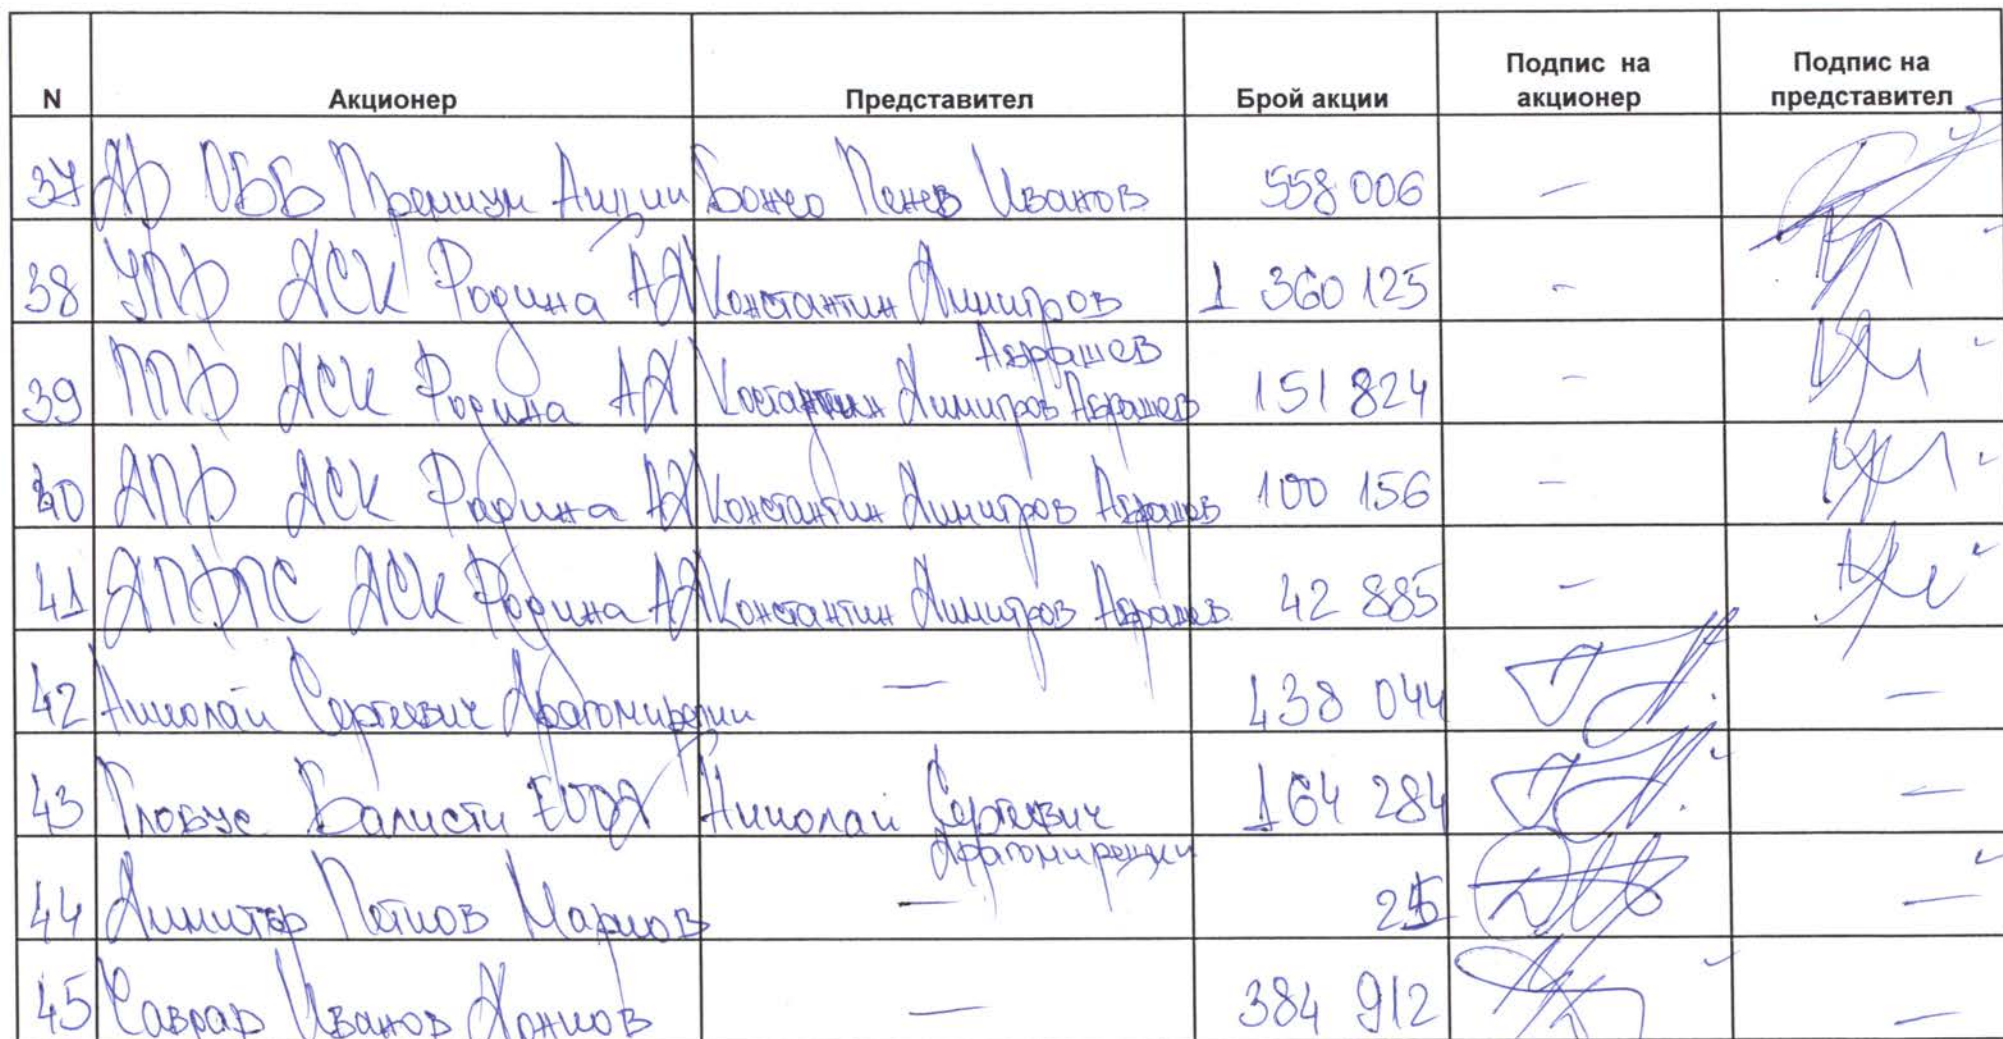 N Акционер Представител Брой акции Подпис на акционер Подпис на представител
37 ДФ ОББ Премиум Акции Бойко Пенев Иванов 558 006 —
38 УПФ ДСК Родина АД Константин Димитров Абрашев 1 360 125 -
39 ППФ ДСК Родина АД Костантин Димитров Абрашев 151 824 -
40 ДПФ ДСК Родина АД Константин Димитров Абрашев 100 156 —
41 ДПФПС ДСК Родина АД Константин Димитров Абрашев 42 885 -
42 Николай Сергеевич Драгомирецки — 138 044 —
43 Глобус Балисти ЕООД Николай Сергеевич Драгомирецки 164 284 —
44 Димитър Петков Марков — —
45 Иванов — 384 912 —